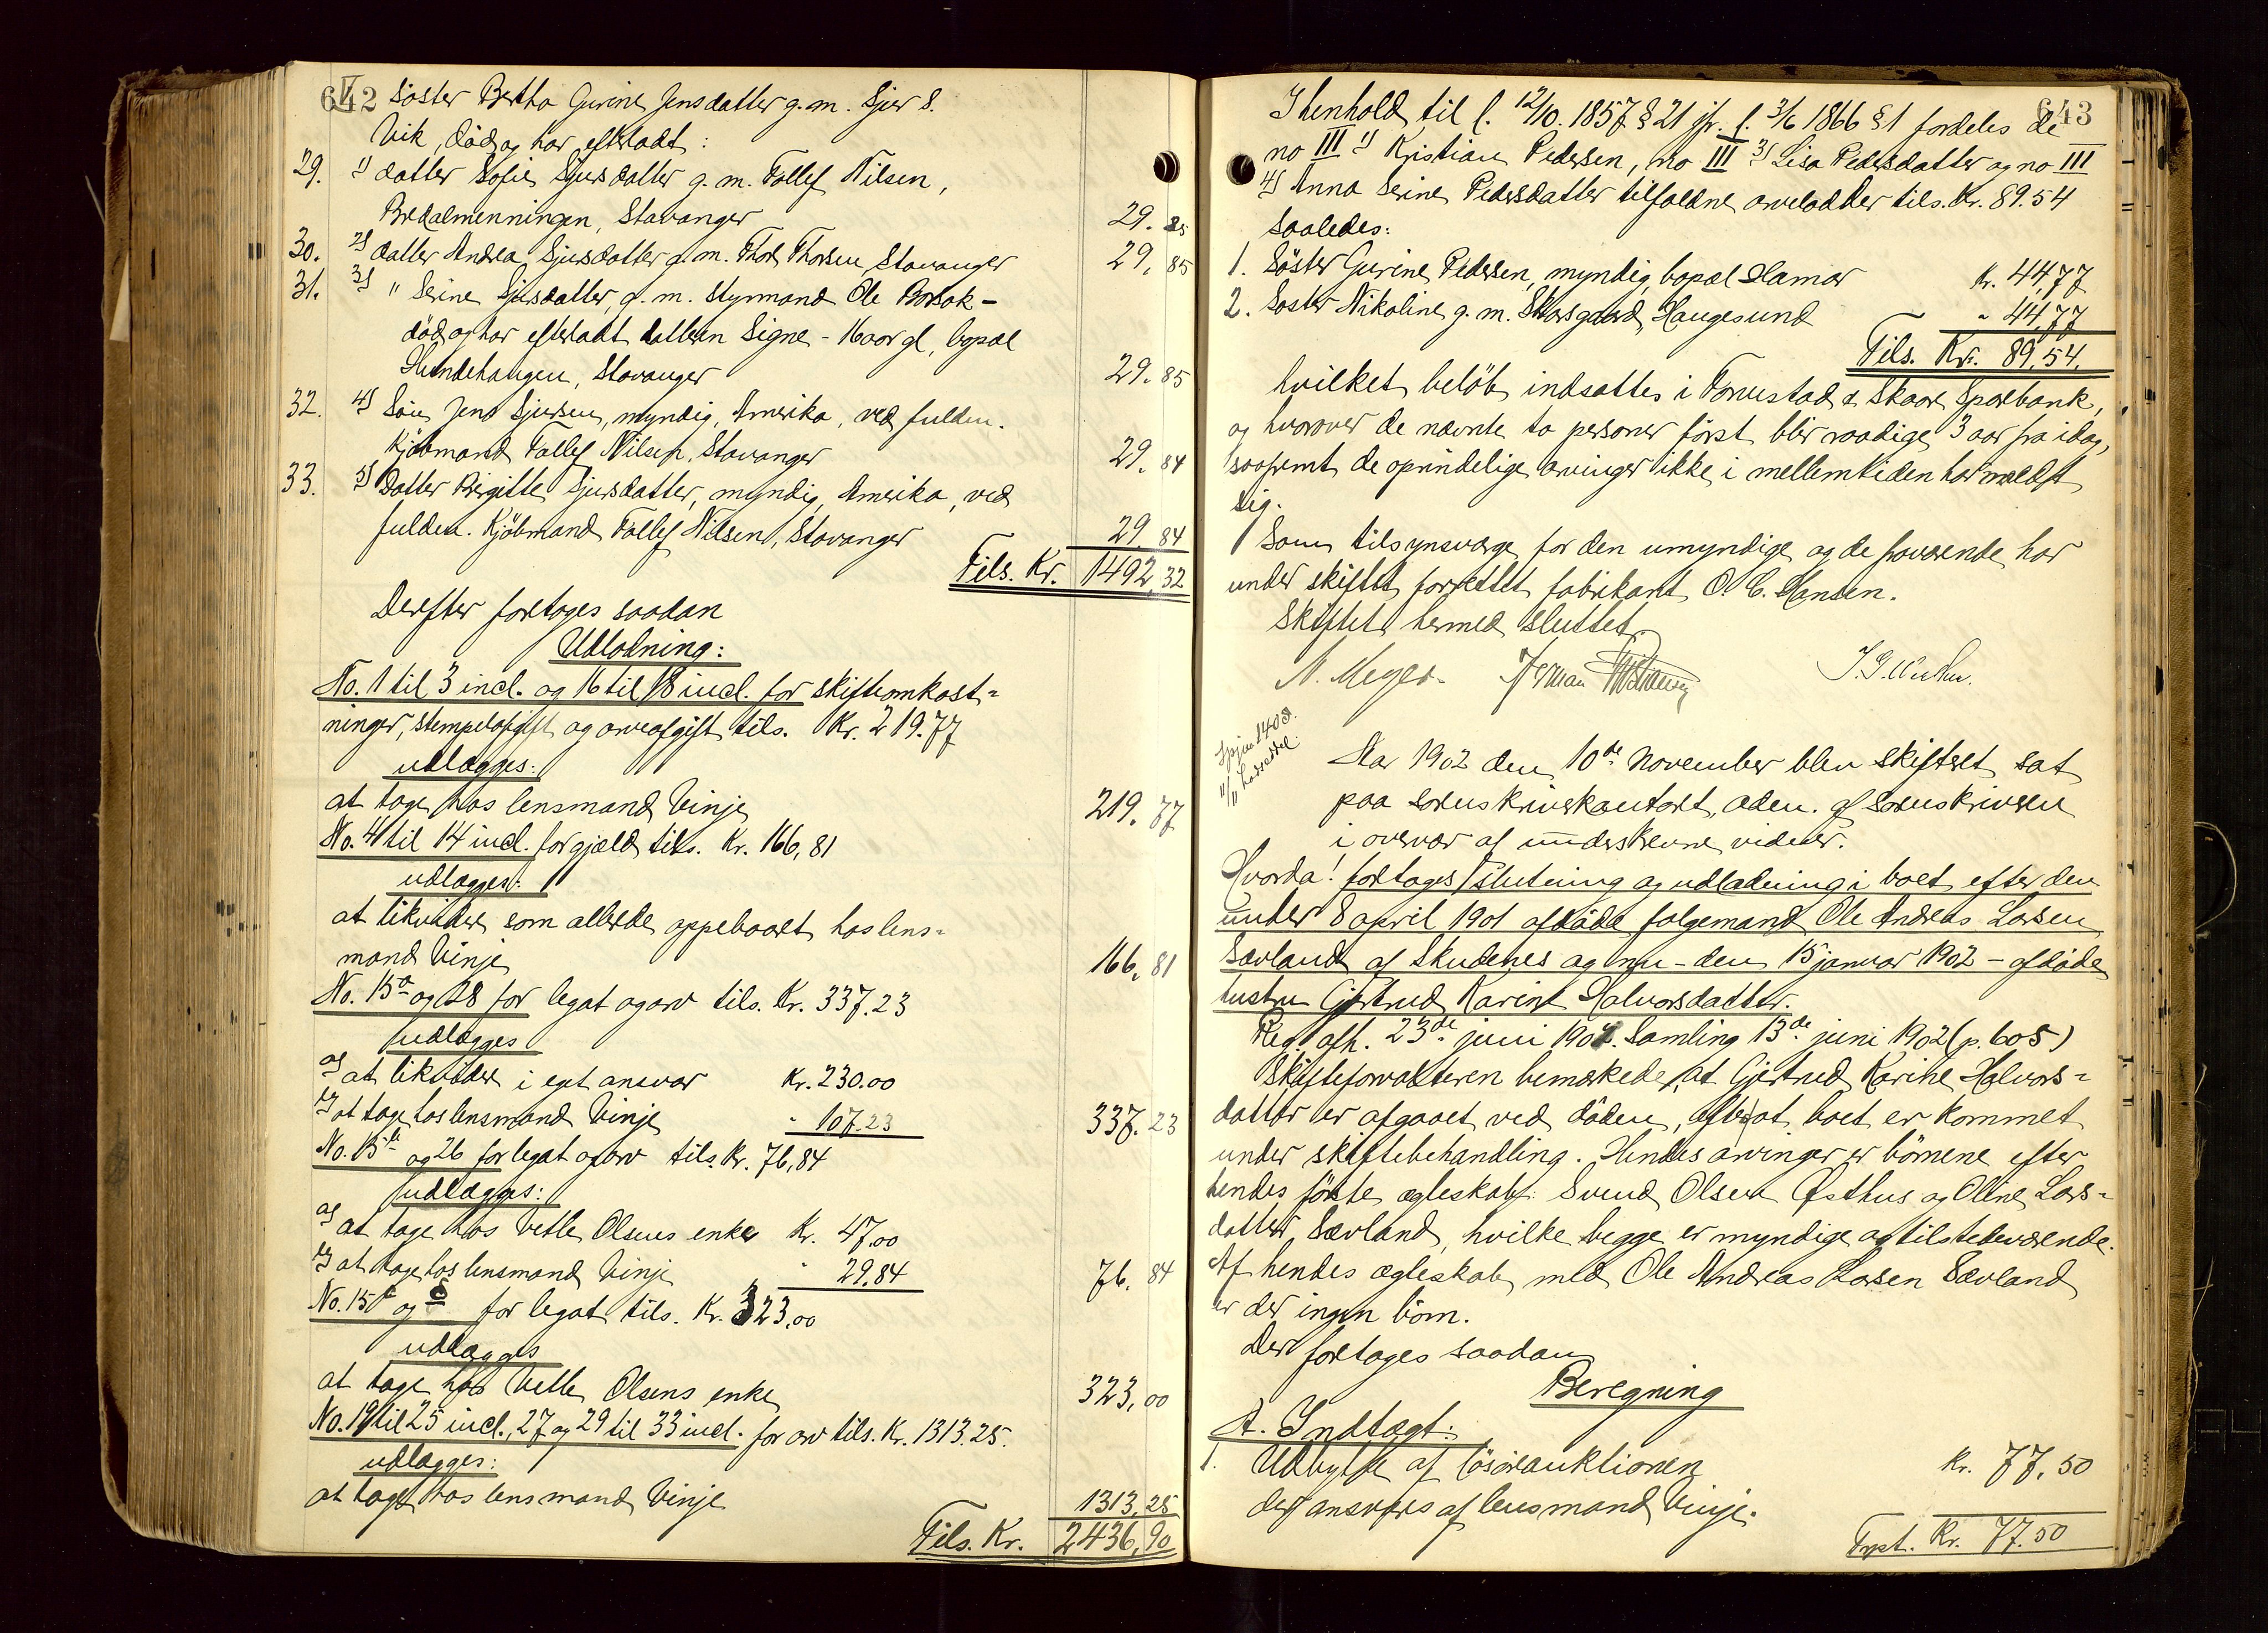 642
V Söster Bertha Gurine Jensdatter g. m. Sjur S.
Vik, död og har efterladt:
29. 1) datter Sofie Sjursdatter g. m. Tollef Nilsen,
Bredalmenningen, Stavanger 29.85
30. 2) datter Andrea Sjursdatter g. m. Thor Thorsen, Stavanger 29,85
31. 3) " Serine Sjursdatter, g. m. Styrmand Ole -
död og har efterladt datteren Signe - 16 aar gl., bopæl
Stavanger 29.85
32. 4) Sön Jens Sjursen, myndig, Amerika, ved fuldm.
Kjöbmand Tollef Nilsen, Stavanger 29.84
33. 5) Datter Birgitte Sjursdatter, myndig, Amerika, ved
fuldm. Kjöbmand Tollef Nilsen, Stavanger 29.84
Tils. Kr. 1492,32
Derefter foretages saadan
Udlodning:
No. 1 til 3 incl. og 16 til 18 incl. for skifteomkost=
ninger, stempelafgift og arveafgift tils. Kr. 219.77
udlægges:
at tage hos lensmand Vinje 219.77
No. 4 til 14 incl. for gjæld tils. Kr. 166,81
udlægges:
at likvidere som allerede oppebaaret hos lens=
mand Vinje 166,81
No. 15a og 28 for legat og arv tils. Kr. 337.23
udlægges
a) at likvidere i eget ansvar Kr. 230.00
b) at tage hos lensmand Vinje " 107.23 337.23
No. 15b og 26 for legat og arv tils. Kr. 76,84
udlægges:
a) at tage hos Vetle Olsens enke Kr. 47.00
b) at tage hos lensmand Vinje " 29.84 76,84
No. 15 og for legat tils. Kr. 323.00
udlægges
at tage hos Vetle Olsens enke 323,00
No. 19 til 25 incl., 27 og 29 til 33 incl. for arv tils. Kr. 1313.25.
udlægges:
at tage hos lensmand Vinje 1313,25
Tils. Kr. 2436,90
643
I henhold til l. 12/10. 1857 § 21 jfr. l. 3/6 1866 § 1 fordeles de
no III 1) Kristian Pedersen, no III 3) Lisa Pedersdatter og no III
4) Anna Serine Pedersdatter tilfaldne arvelodder tils. Kr. 89.54
saaledes:
1. Söster Gurine Pedersen, myndig, bopæl Hamar Kr. 44,77
2. Söster Nikoline g. m. Haugesund " 44,77
Tils. Kr. 89,54.
hvilket belöb indsattes i Torvestad & Skaare Sparebank,
og hvorover de nævnte to personer först blir raadige 3 aar fra idag,
saafremt de oprindelige arvinger ikke i mellemtiden har meldt
sig.
Som tilsynsværge for den umyndige og de fraværende har
under skiftet forrettet fabrikant O. C. Hansen.
Skiftet hermed sluttet.
N. Meyer. Herman
Aar 1902 den 10de November blev skifteret sat
paa sorenskriverkontoret, adm. af sorenskriveren
i overvær af underskrevne vidner.
Hvorda! foretages slutning og udlodning i boet efter den
under 8 april 1901 afdöde folgemand Ole Andreas Larsen
Sævland af Skudenes og nu - den 15 januar 1902 - afdöde
hustru Gjertrud Karine Halvorsdatter.
Reg. afh. 23de juni 1902. Samling 13de juni 1902 (p. 605)
Skifteforvalteren bemærkede, at Gjertrud Karine Halvors=
datter er afgaaet ved döden, efter at boet er kommet
under skiftebehandling. Hendes arvinger er börnene efter
hendes förste ægteskab: Svend Olsen Østhus og Oline Lars=
datter Sævland, hvilke begge er myndige og tilstedeværende.
Af hendes ægteskab med Ole Andreas Larsen Sævland
er der ingen börn.
Der foretages saadan
Beregning
A. Indtægt:
1. Udbytte af lösöreauktionen Kr. 77.50
der ansvares af lensmand Vinje.
Trpt. Kr. 77.50